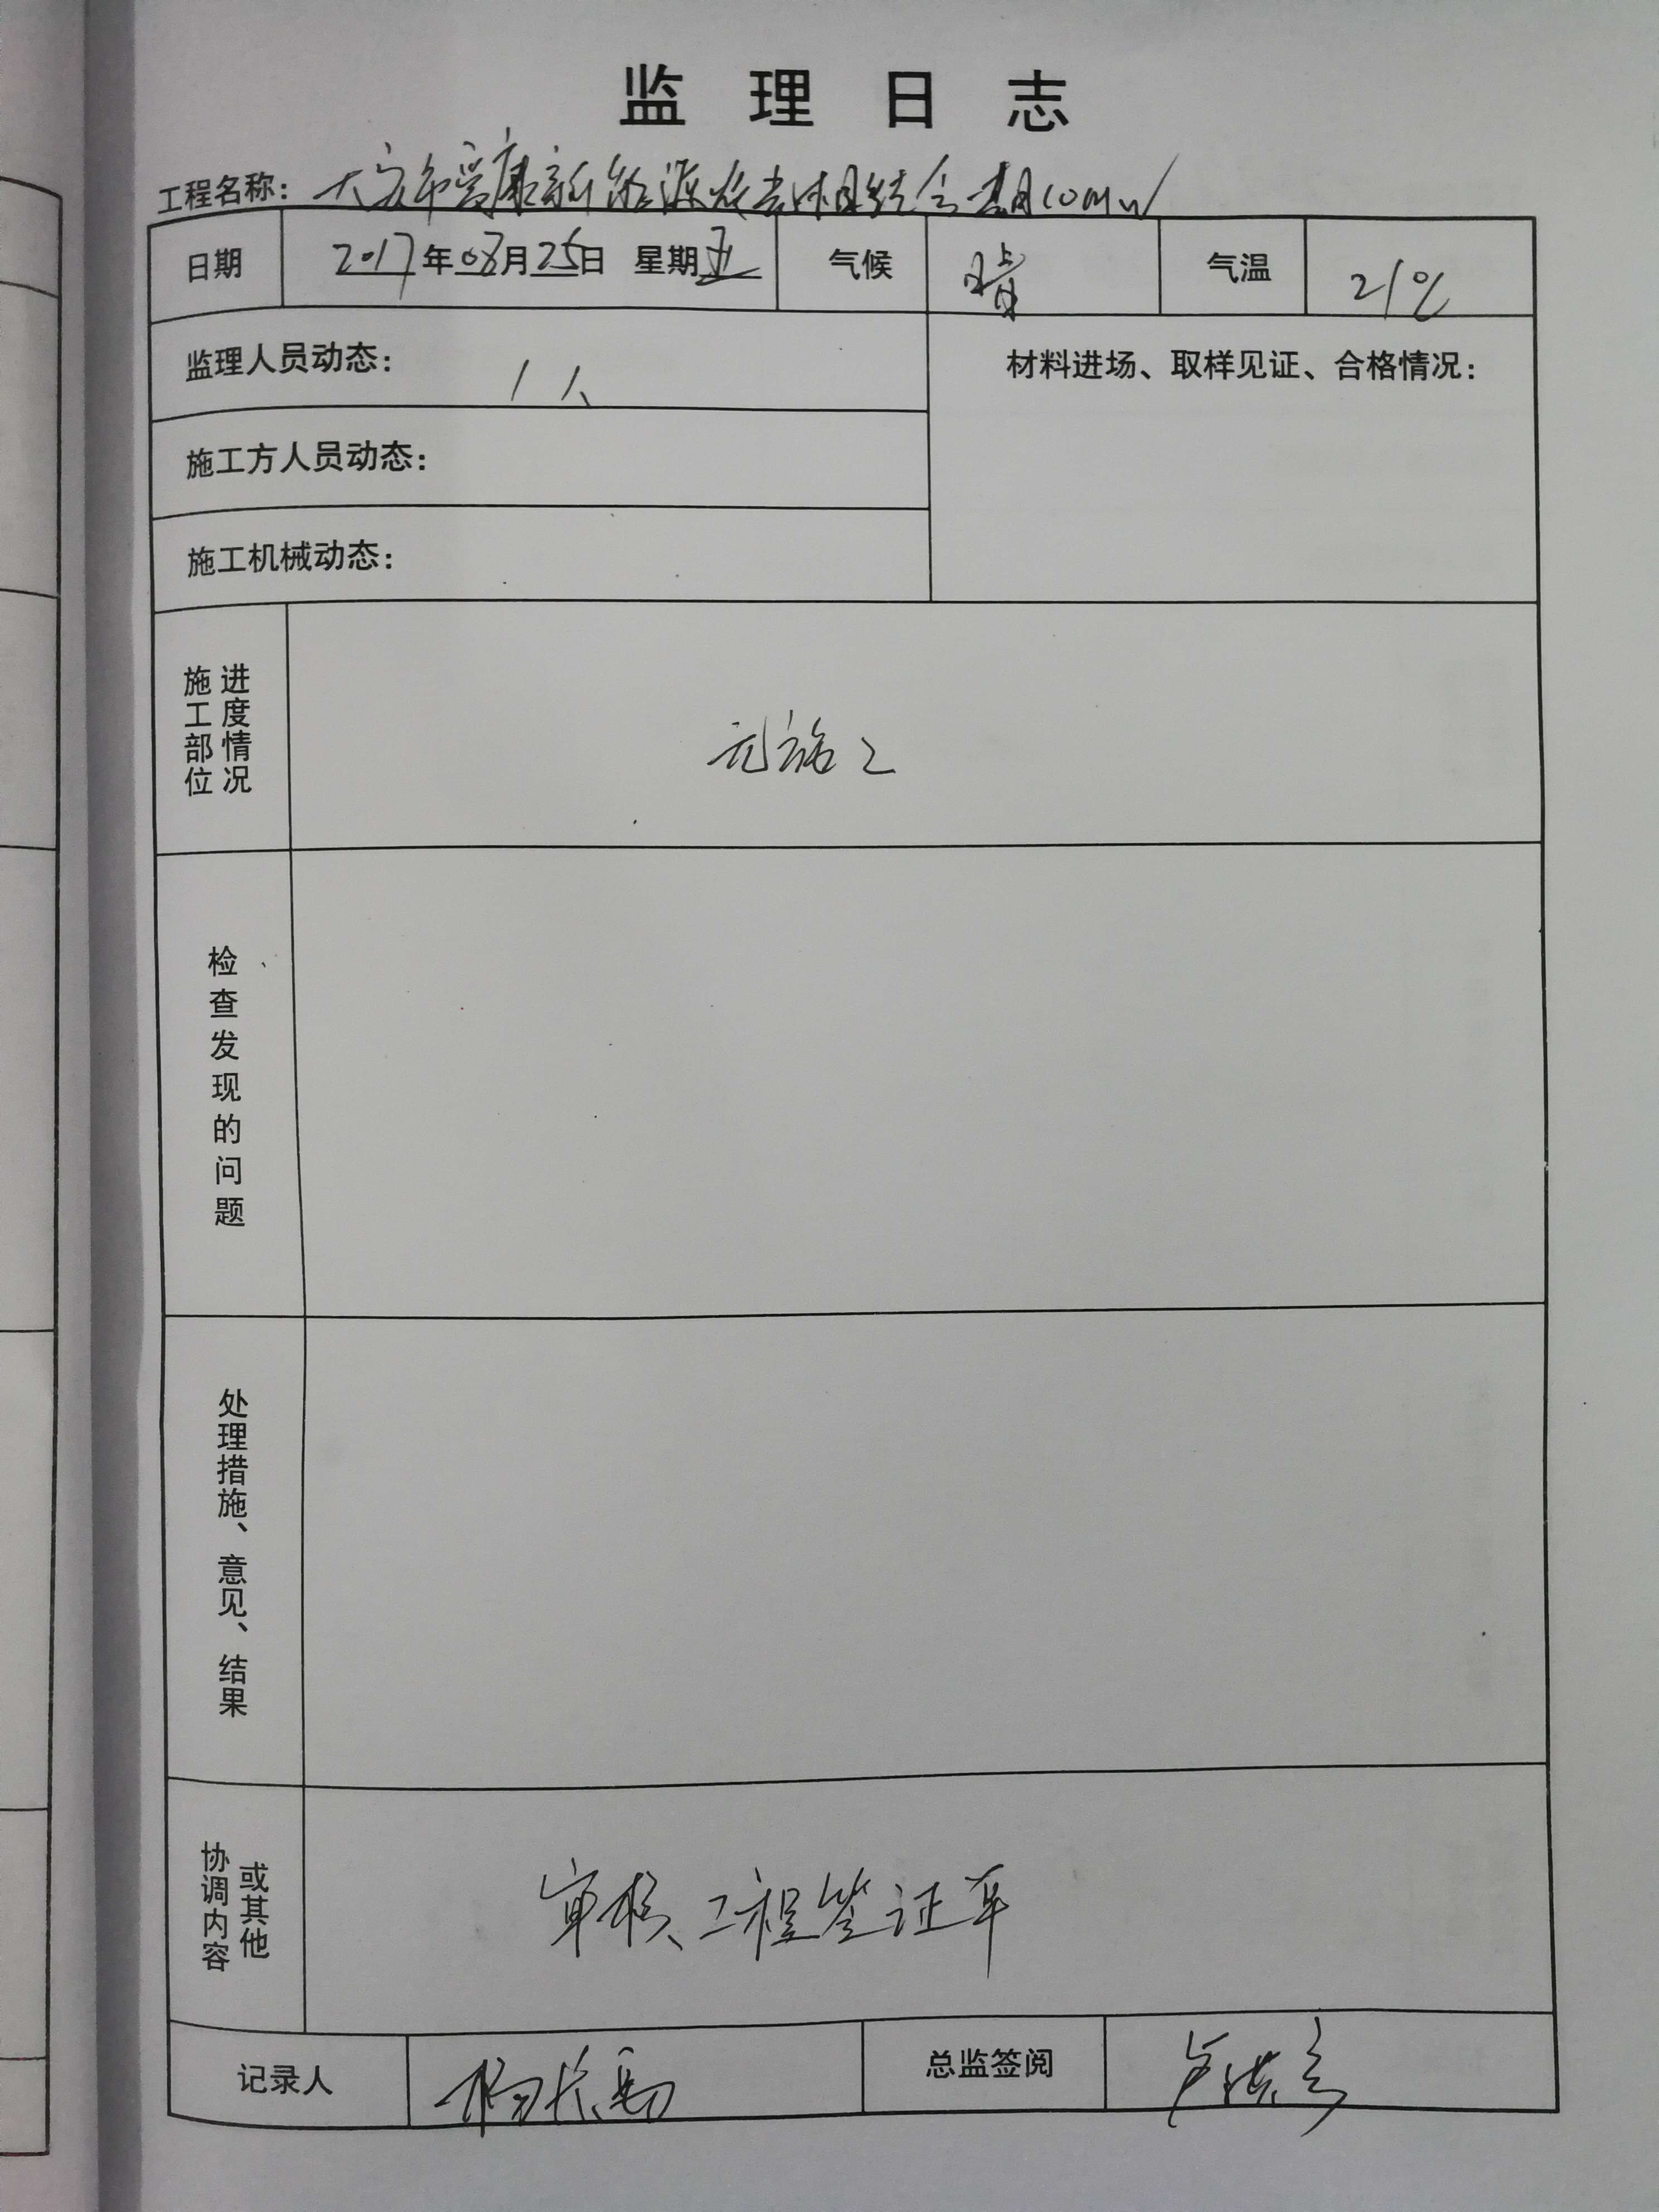 监理日志
工程名称：大安市爱康新能源农光相结合一期10MW
日期 2017年08月25日 星期五 气候 晴 气温 21℃
监理人员动态： 1人
材料进场、取样见证、合格情况：
施工方人员动态：
施工机械动态：
施工部位 进度情况 无施工
检查发现的问题
处理措施、意见、结果
协调内容 或其他 审核工程签证单
记录人 杨长 总监签阅 卢